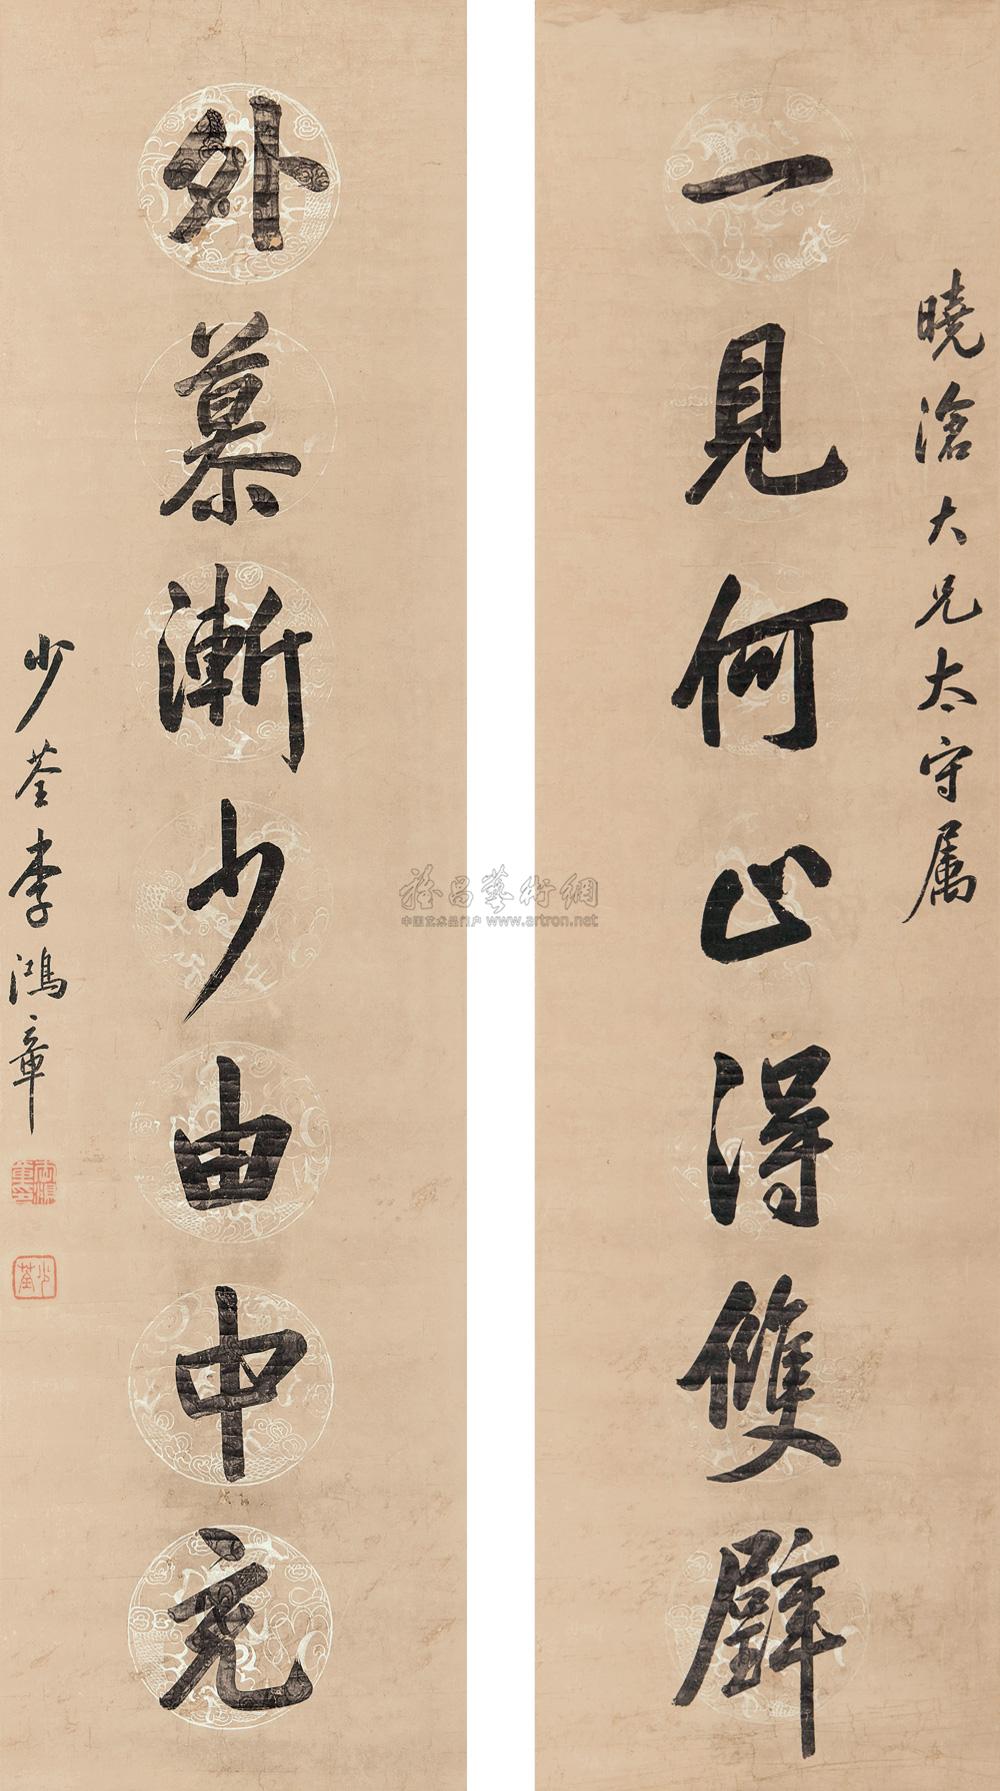 曉滄大兄太守属
一見何止得雙璧
外慕漸少由中充
少荃李鴻章
少荃
雅昌藝術網
中国艺术品门户 www.artron.net